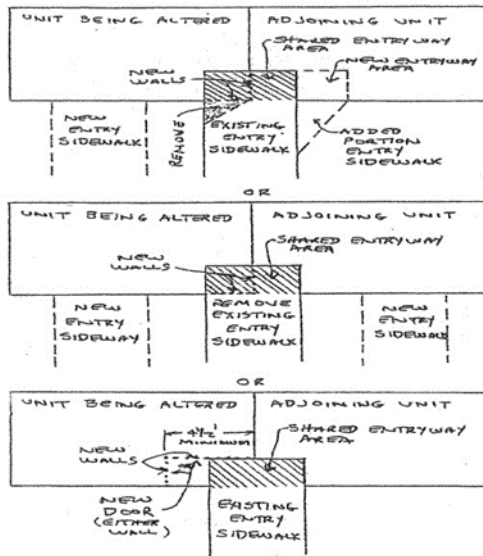 UNIT BEING ALTERED
ADJOINING UNIT
SHARED ENTRYWAY
AREA
NEW ENTRYWAY
AREA
NEW
WALLS
NEW
ENTRY
SIDEWALK
REMOVE
EXISTING
ENTRY
SIDEWALK
ADDED
PORTION
ENTRY
SIDEWALK
OR
UNIT BEING ALTERED
ADJOINING UNIT
NEW
WALLS
SHARED ENTRYWAY
AREA
NEW
ENTRY
SIDEWAY
REMOVE
EXISTING
ENTRY
SIDEWALK
NEW
ENTRY
SIDEWALK
OR
UNIT BEING ALTERED
ADJOINING UNIT
4½'
MINIMUM
SHARED ENTRYWAY
AREA
NEW
WALLS
NEW
DOOR
(EITHER
WALL)
EXISTING
ENTRY
SIDEWALK